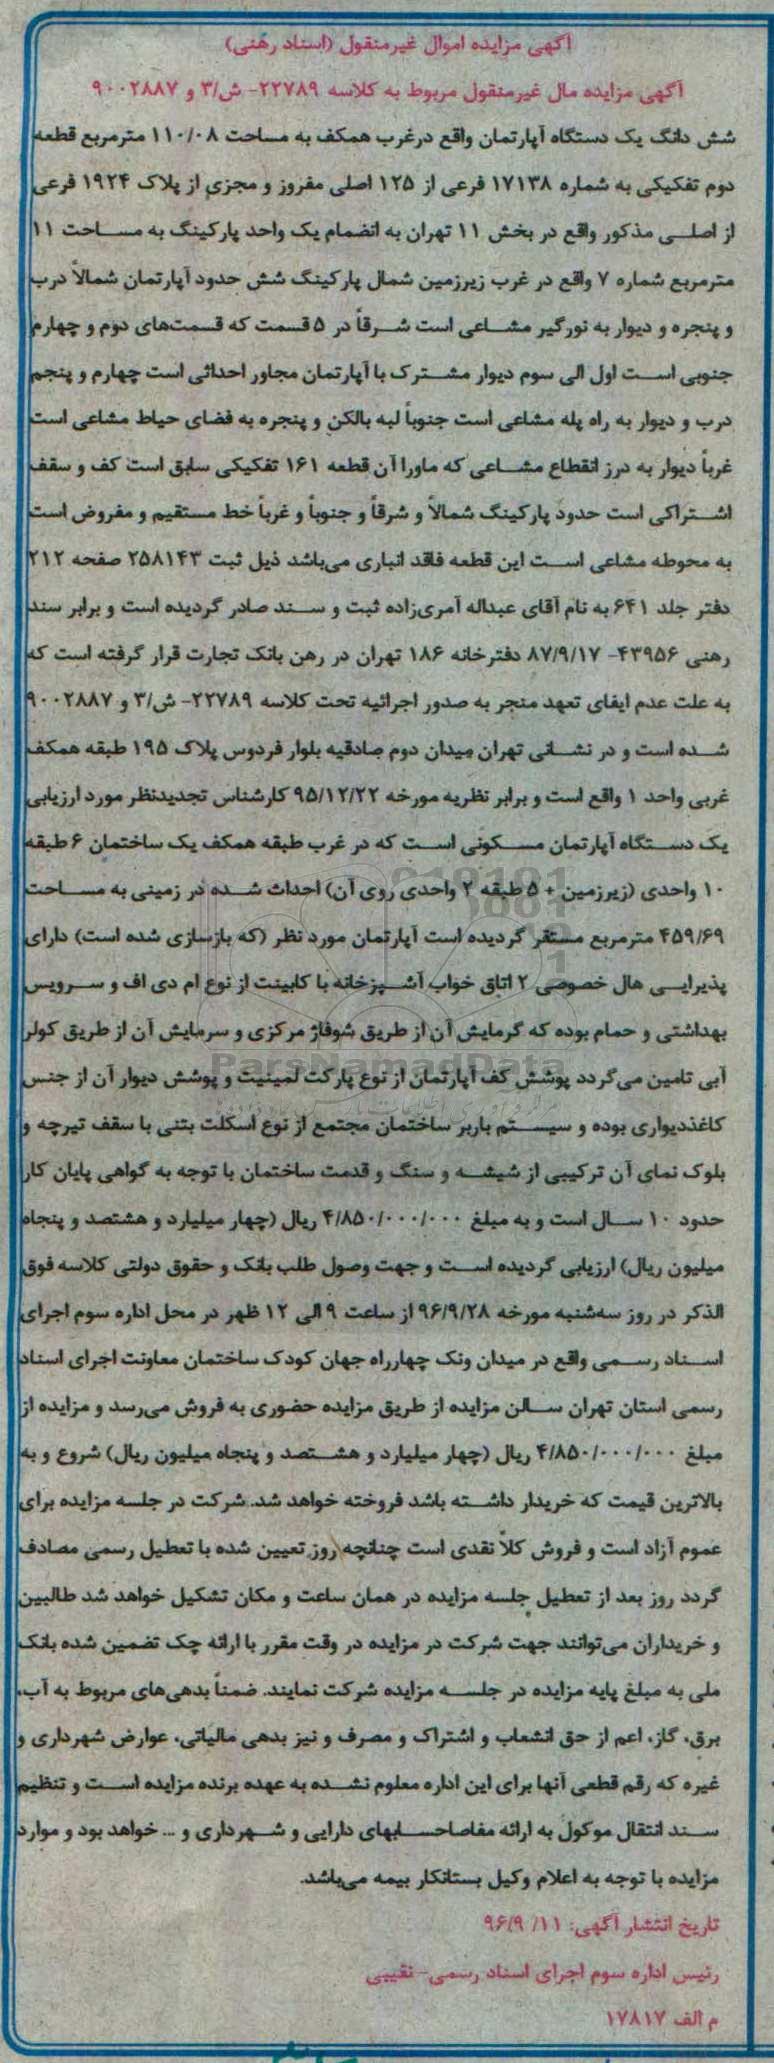 آگهی مزایده اموال غیرمنقول (اسناد رهنی)
آگهی مزایده مال غیرمنقول مربوط به کلاسه ۲۲۷۸۹- ش/۳ و ۹۰۰۲۸۸۷
شش دانگ یک دستگاه آپارتمان واقع درغرب همکف به مساحت ۱۱۰/۰۸ مترمربع قطعه
دوم تفکیکی به شماره ۱۷۱۳۸ فرعی از ۱۲۵ اصلی مفروز و مجزی از پلاک ۱۹۲۴ فرعی
از اصلی مذکور واقع در بخش ۱۱ تهران به انضمام یک واحد پارکینگ به مساحت ۱۱
مترمربع شماره ۷ واقع در غرب زیرزمین شمال پارکینگ شش حدود آپارتمان شمالاً درب
و پنجره و دیوار به نورگیر مشاعی است شرقاً در ۵ قسمت که قسمت‌های دوم و چهارم
جنوبی است اول الی سوم دیوار مشترک با آپارتمان مجاور احداثی است چهارم و پنجم
درب و دیوار به راه پله مشاعی است جنوباً لبه بالکن و پنجره به فضای حیاط مشاعی است
غرباً دیوار به درز انقطاع مشاعی که ماورا آن قطعه ۱۶۱ تفکیکی سابق است کف و سقف
اشتراکی است حدود پارکینگ شمالاً و شرقاً و جنوباً و غرباً خط مستقیم و مفروض است
به محوطه مشاعی است این قطعه فاقد انباری می‌باشد ذیل ثبت ۲۵۸۱۴۳ صفحه ۲۱۲
دفتر جلد ۶۴۱ به نام آقای عبداله آمری‌زاده ثبت و سند صادر گردیده است و برابر سند
رهنی ۴۳۹۵۶- ۸۷/۹/۱۷ دفترخانه ۱۸۶ تهران در رهن بانک تجارت قرار گرفته است که
به علت عدم ایفای تعهد منجر به صدور اجرائیه تحت کلاسه ۲۲۷۸۹- ش/۳ و ۹۰۰۲۸۸۷
شده است و در نشانی تهران میدان دوم صادقیه بلوار فردوس پلاک ۱۹۵ طبقه همکف
غربی واحد ۱ واقع است و برابر نظریه مورخه ۹۵/۱۲/۲۲ کارشناس تجدیدنظر مورد ارزیابی
یک دستگاه آپارتمان مسکونی است که در غرب طبقه همکف یک ساختمان ۶ طبقه
۱۰ واحدی (زیرزمین + ۵ طبقه ۲ واحدی روی آن) احداث شده در زمینی به مساحت
۴۵۹/۶۹ مترمربع مستقر گردیده است آپارتمان مورد نظر (که بازسازی شده است) دارای
پذیرایی هال خصوصی ۲ اتاق خواب آشپزخانه با کابینت از نوع ام دی اف و سرویس
بهداشتی و حمام بوده که گرمایش آن از طریق شوفاژ مرکزی و سرمایش آن از طریق کولر
ParsNamadData
آبی تامین می‌گردد پوشش کف آپارتمان از نوع پارکت لمینیت و پوشش دیوار آن از جنس
کاغذدیواری بوده و سیستم باربر ساختمان مجتمع از نوع اسکلت بتنی با سقف تیرچه و
بلوک نمای آن ترکیبی از شیشه و سنگ و قدمت ساختمان با توجه به گواهی پایان کار
حدود ۱۰ سال است و به مبلغ ۴/۸۵۰/۰۰۰/۰۰۰ ریال (چهار میلیارد و هشتصد و پنجاه
میلیون ریال) ارزیابی گردیده است و جهت وصول طلب بانک و حقوق دولتی کلاسه فوق
الذکر در روز سه‌شنبه مورخه ۹۶/۹/۲۸ از ساعت ۹ الی ۱۲ ظهر در محل اداره سوم اجرای
اسناد رسمی واقع در میدان ونک چهارراه جهان کودک ساختمان معاونت اجرای اسناد
رسمی استان تهران سالن مزایده از طریق مزایده حضوری به فروش می‌رسد و مزایده از
مبلغ ۴/۸۵۰/۰۰۰/۰۰۰ ریال (چهار میلیارد و هشتصد و پنجاه میلیون ریال) شروع و به
بالاترین قیمت که خریدار داشته باشد فروخته خواهد شد. شرکت در جلسه مزایده برای
عموم آزاد است و فروش کلاً نقدی است چنانچه روز تعیین شده با تعطیل رسمی مصادف
گردد روز بعد از تعطیل جلسه مزایده در همان ساعت و مکان تشکیل خواهد شد طالبین
و خریداران می‌توانند جهت شرکت در مزایده در وقت مقرر با ارائه چک تضمین شده بانک
ملی به مبلغ پایه مزایده در جلسه مزایده شرکت نمایند. ضمناً بدهی‌های مربوط به آب،
برق، گاز، اعم از حق انشعاب و اشتراک و مصرف و نیز بدهی مالیاتی، عوارض شهرداری و
غیره که رقم قطعی آنها برای این اداره معلوم نشده به عهده برنده مزایده است و تنظیم
سند انتقال موکول به ارائه مفاصاحسابهای دارایی و شهرداری و ... خواهد بود و موارد
مزایده با توجه به اعلام وکیل بستانکار بیمه می‌باشد.
تاریخ انتشار آگهی: ۱۱/ ۹۶/۹
رئیس اداره سوم اجرای اسناد رسمی- نقیبی
م الف ۱۷۸۱۷